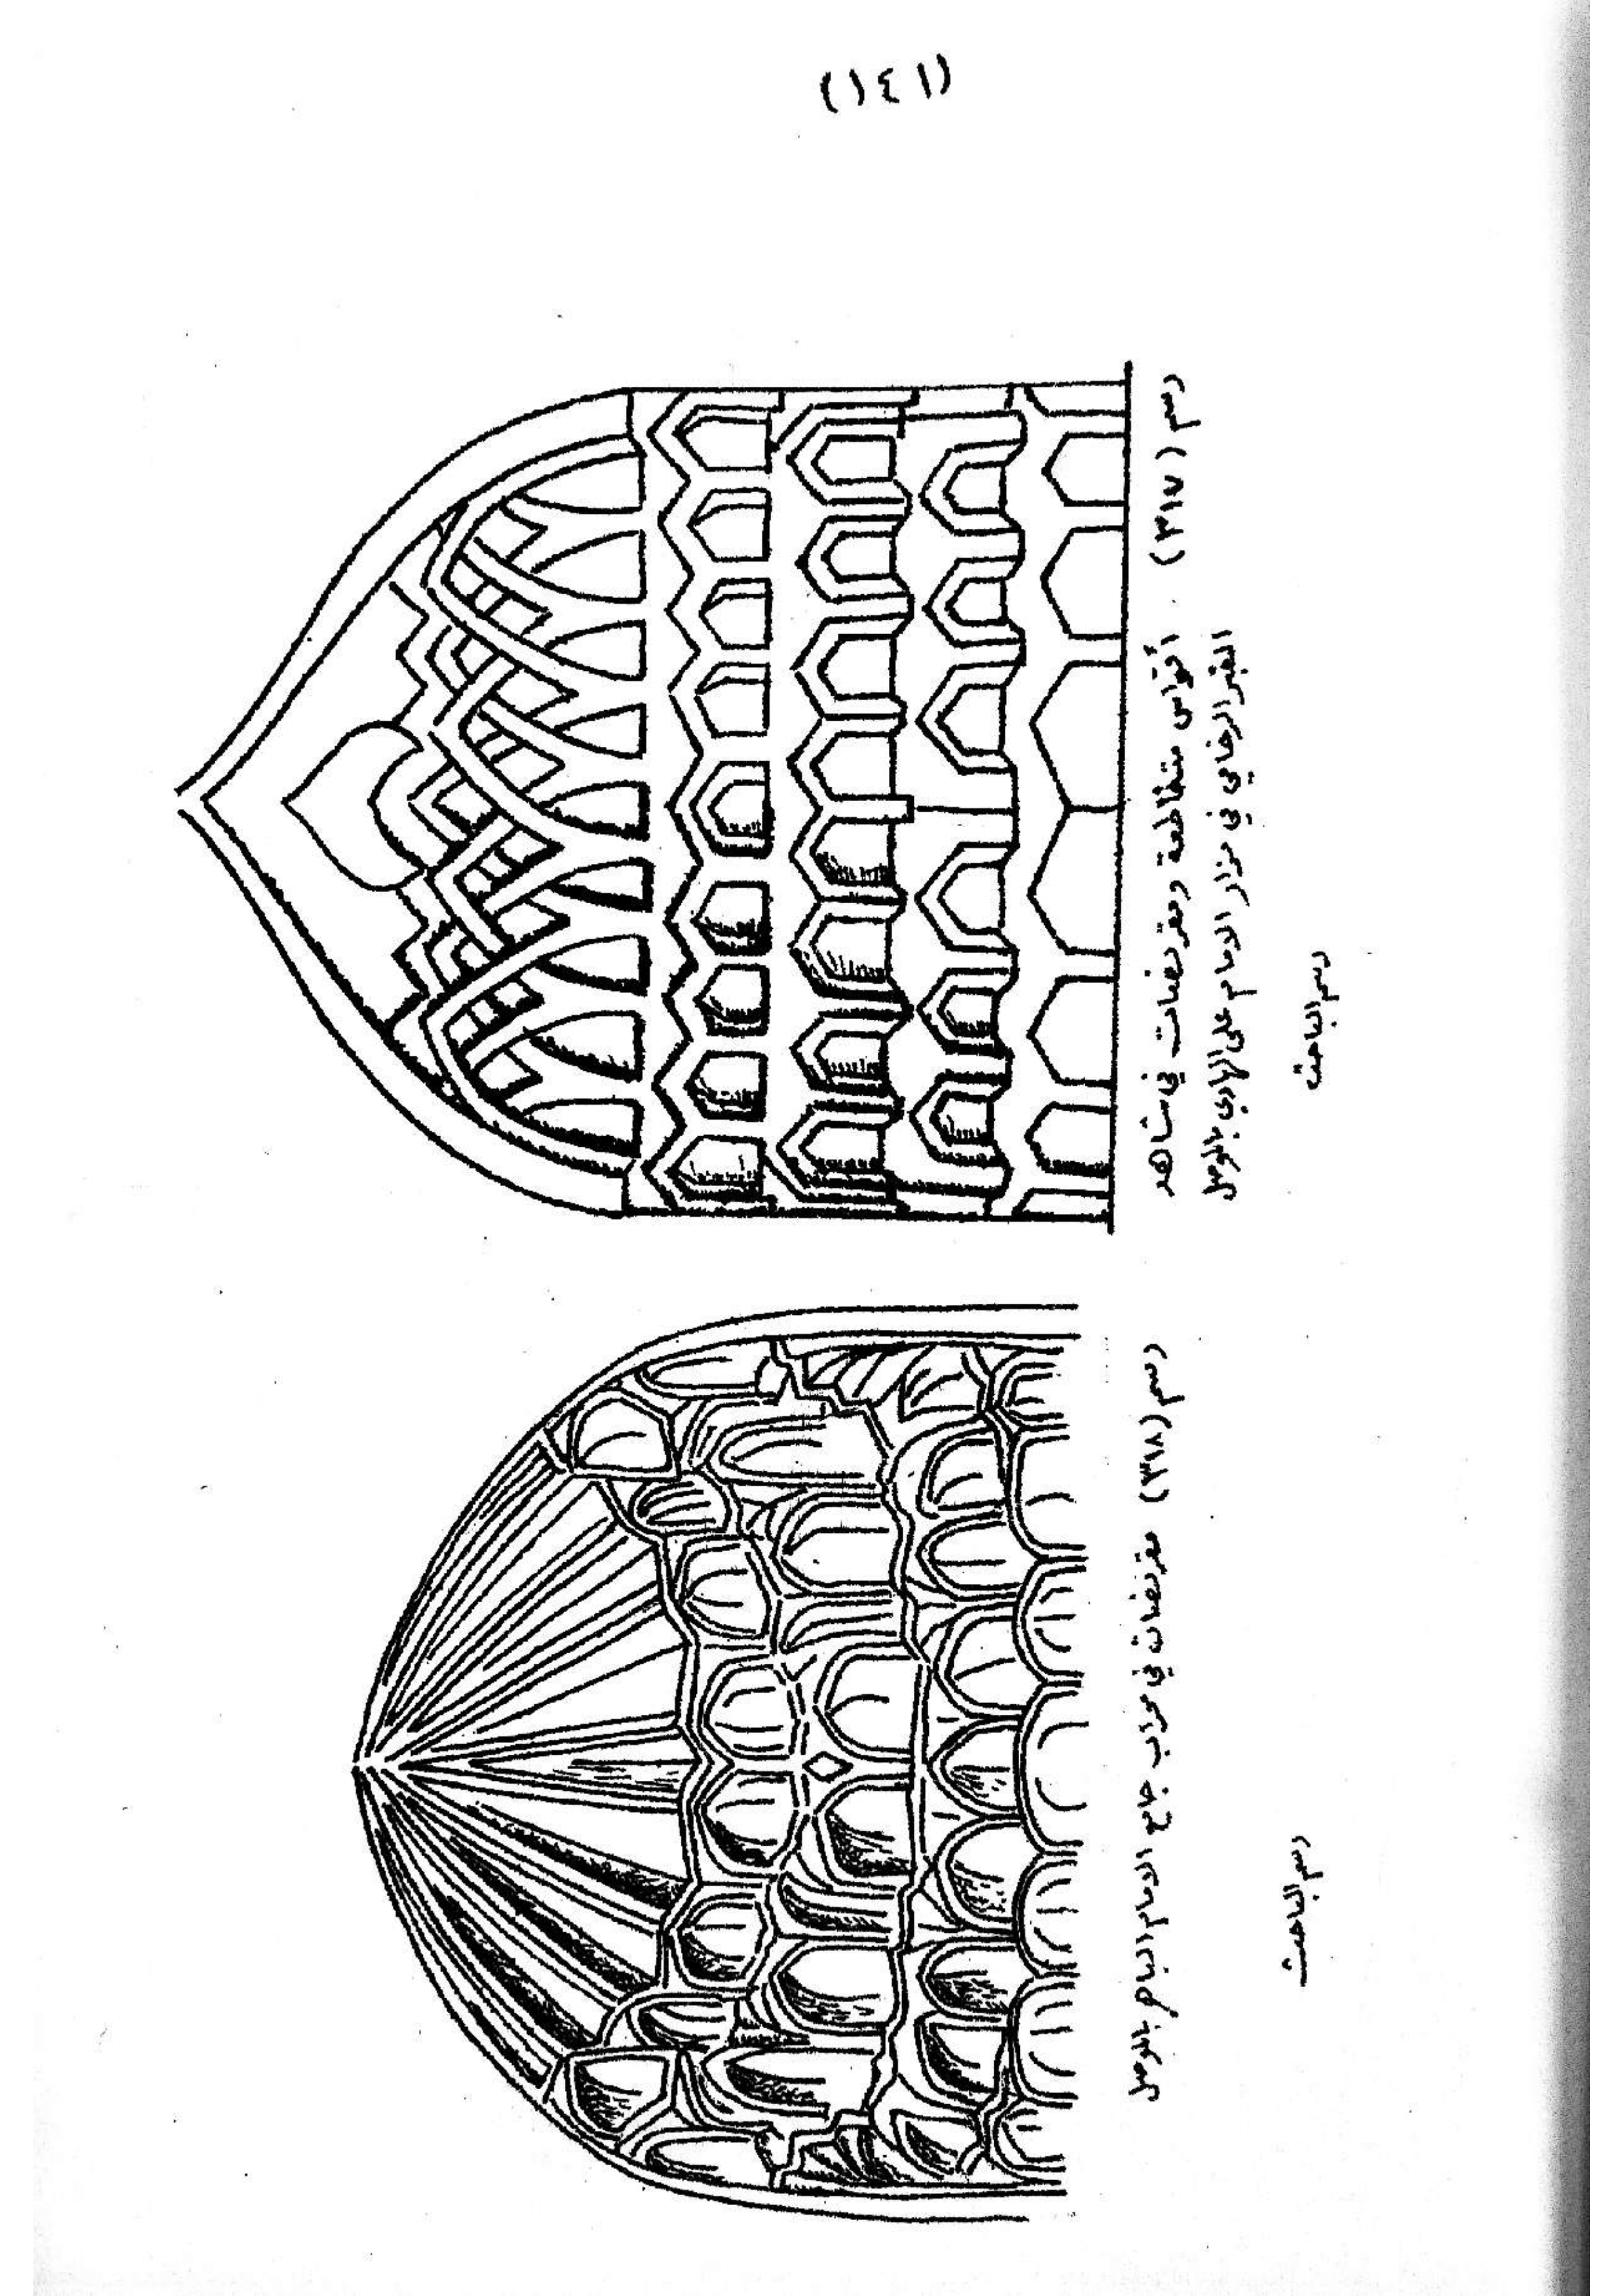 (١٤١)
رسم (٣١٧) أقواس متقاطعة ومقرنصات في شاهد
القبر الرخامي في مزار الامام علي الهادي بالموصل
رسم الباحث
رسم (٣١٨) مقرنصات في محراب جامع الامام الباهر بالموصل
رسم الباحث